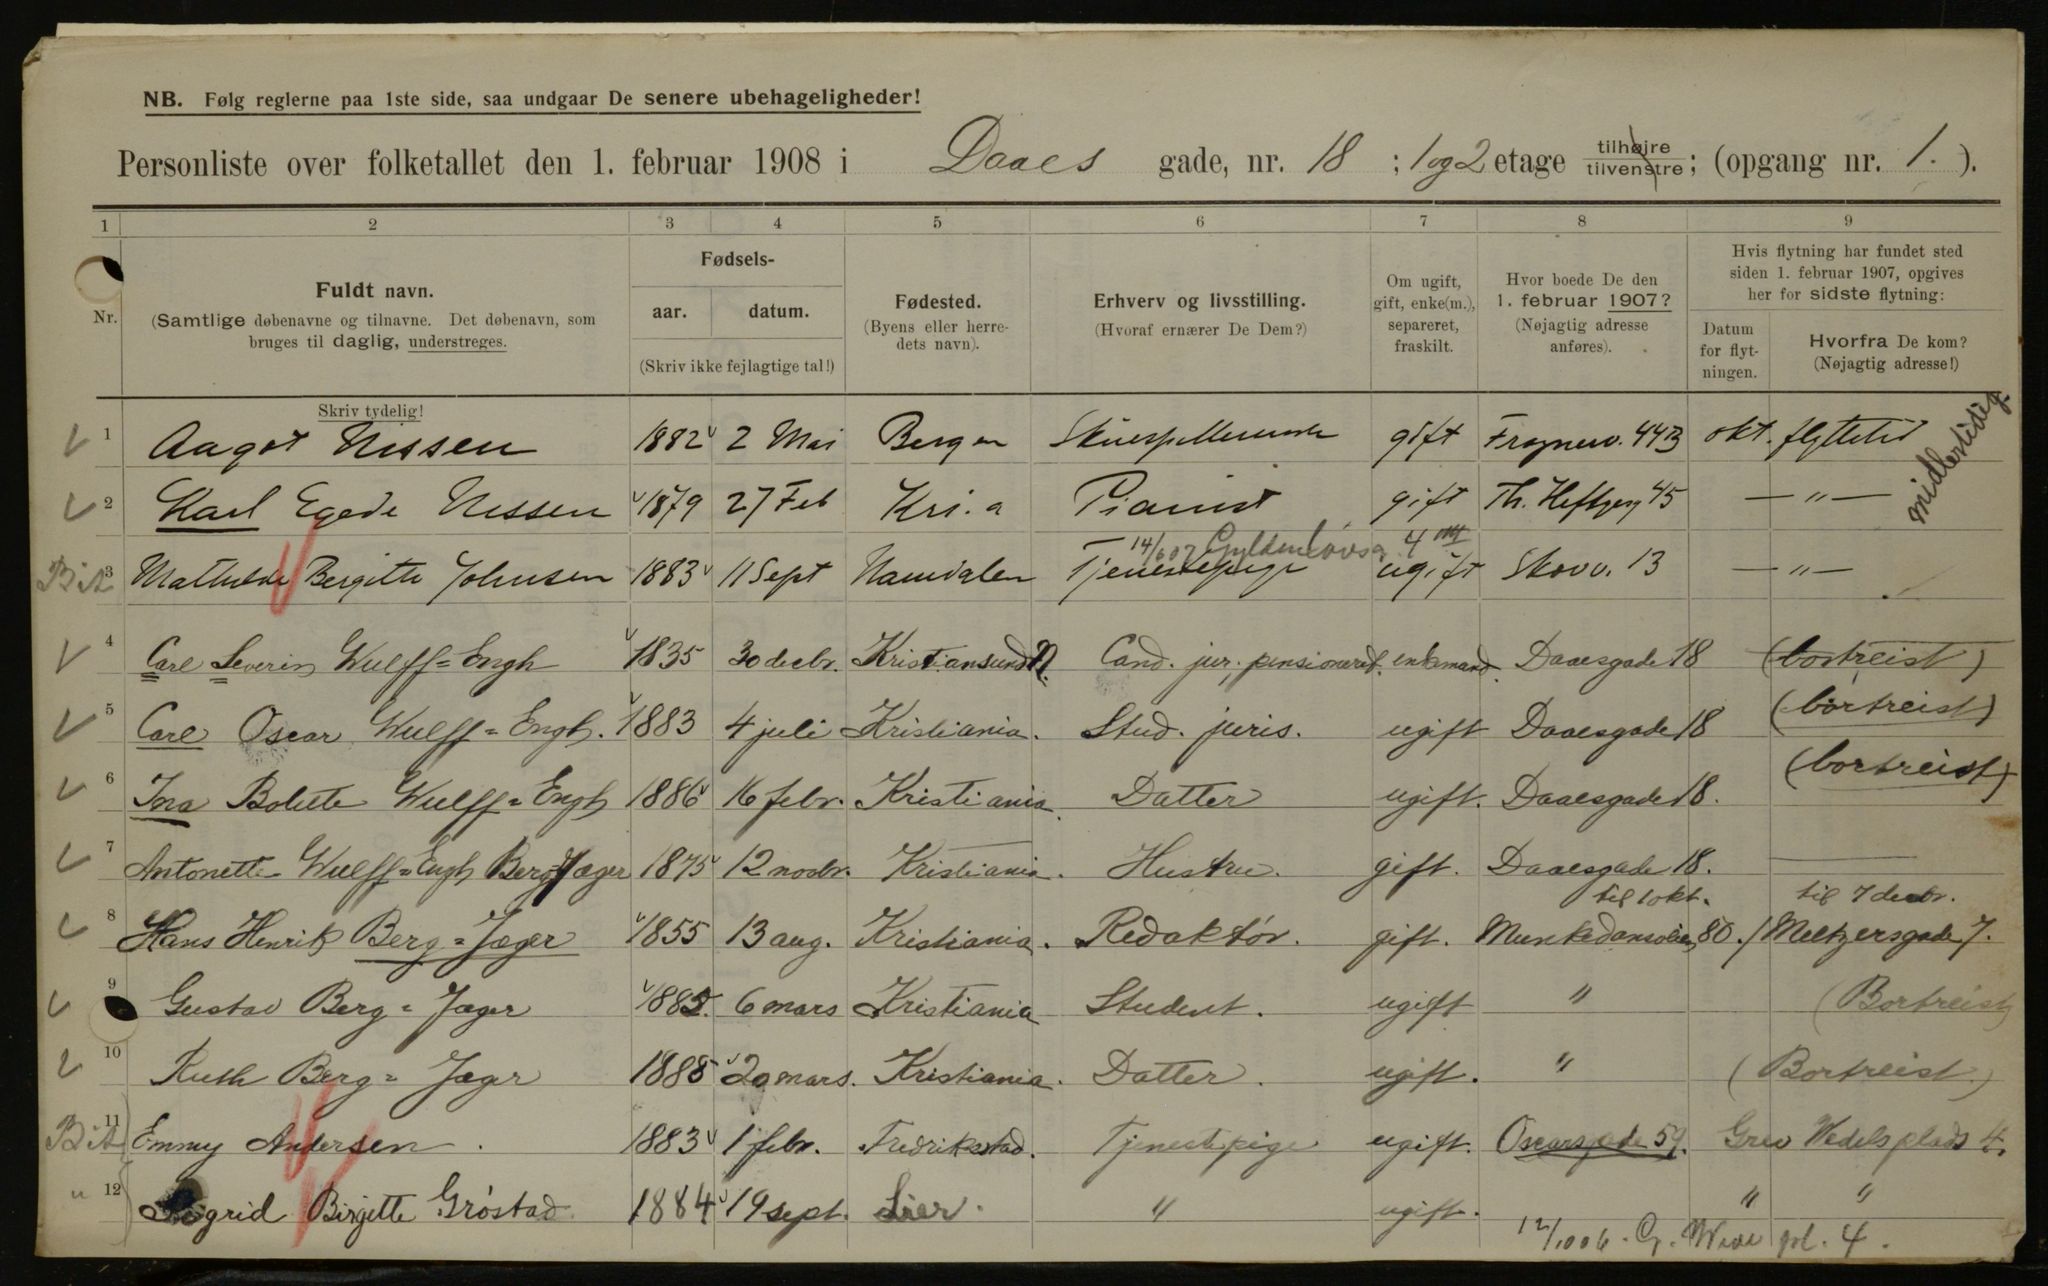 NB. Følg reglerne paa 1ste side, saa undgaar De senere ubehageligheder!
Personliste over folketallet den 1. februar 1908 i Daaes gade, nr. 18 ; 1 og 2 etage tilhøjre tilvenstre ; (opgang nr. 1. ).
1 2 3 4 5 6 7 8 9
Nr.
Fuldt navn.
(Samtlige døbenavne og tilnavne. Det døbenavn, som
bruges til daglig, understreges.
Skriv tydelig!
Fødsels-
aar. datum.
(Skriv ikke fejlagtige tal!)
Fødested.
(Byens eller herre-
dets navn).
Erhverv og livsstilling.
(Hvoraf ernærer De Dem?)
Om ugift,
gift, enke(m.),
separeret,
fraskilt.
Hvor boede De den
1. februar 1907?
(Nøjagtig adresse
anføres).
Hvis flytning har fundet sted
siden 1. februar 1907, opgives
her for sidste flytning:
Datum
for flyt-
ningen.
Hvorfra De kom?
(Nøjagtig adresse!)
1 Aagot Nissen 1882 2 Mai Bergen Skuespillerinde gift Frognerv. 44B okt. flyttetid
midlertidig
2 Karl Egede Nissen 1879 27 Feb Kri.a Pianist gift Th. Heftyesg 45 — " —
14/6 07 Gyldenløvsg 4
Bit 3 Mathilde Bergitte Johnsen 1883 11 Sept Namdalen Tjenestepige ugift Skovv. 13 — " —
4 Carl Severin Wulff=Engh 1835 30 decbr. Kristiansund N. Cand. jur, pensioneret. enkemand. Daaesgade 18 (bortreist)
5 Carl Oscar Wulff=Engh. 1883 4 juli Kristiania. Stud. juris. ugift Daaesgade 18 (bortreist)
6 Ina Bolette Wulff=Engh 1886 16 febr. Kristiania. Datter ugift. Daaesgade 18. (bortreist)
7 Antonette Wulff=Engh Berg=Jæger 1875 12 novbr. Kristiania. Hustru. gift. Daaesgade 18.
til 1 okt. til 7 decbr.
8 Hans Henrik Berg=Jæger 1855 13 aug. Kristiania. Redaktør. gift. Munkedamsveien 80. / Meltzersgade 7.
9 Gustav Berg=Jæger 1885. 6 mars Kristiania Student. ugift " (Bortreist)
10 Ruth Berg=Jæger 1888 20 mars. Kristiania. Datter. ugift. " (Bortreist)
Bit 11 Emmy Andersen. 1883 1 febr. Fredrikstad. Tjenestepige ugift. Oscarsgade 59. Grev Wedels plads 4.
" 12 Sigrid Birgitte Grøstad. 1884 19 sept. Lier. " ugift. " "
12/10 06. Gr. Wede pl. 4.